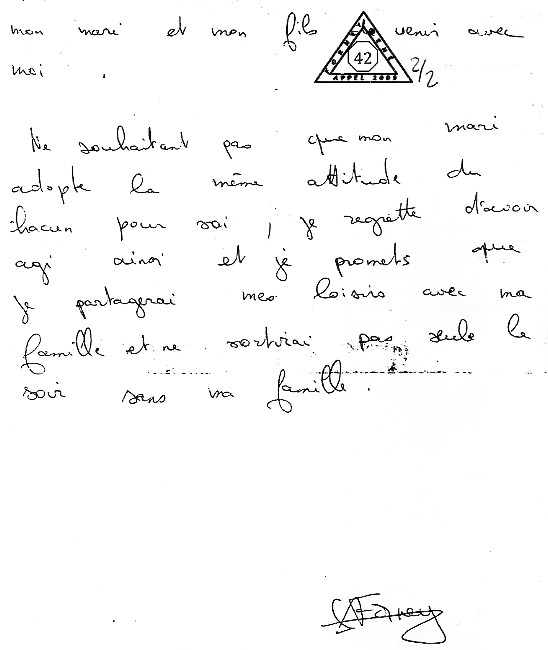 mon mari et mon fils de venir avec
moi.
42
APPEL 2003
2/2
Ne souhaitant pas que mon mari
adopte la même attitude du
chacun pour soi, je regrette d'avoir
agi ainsi et je promets que
je partagerai mes loisirs avec ma
famille et ne sortirai pas seule le
soir sans ma famille.